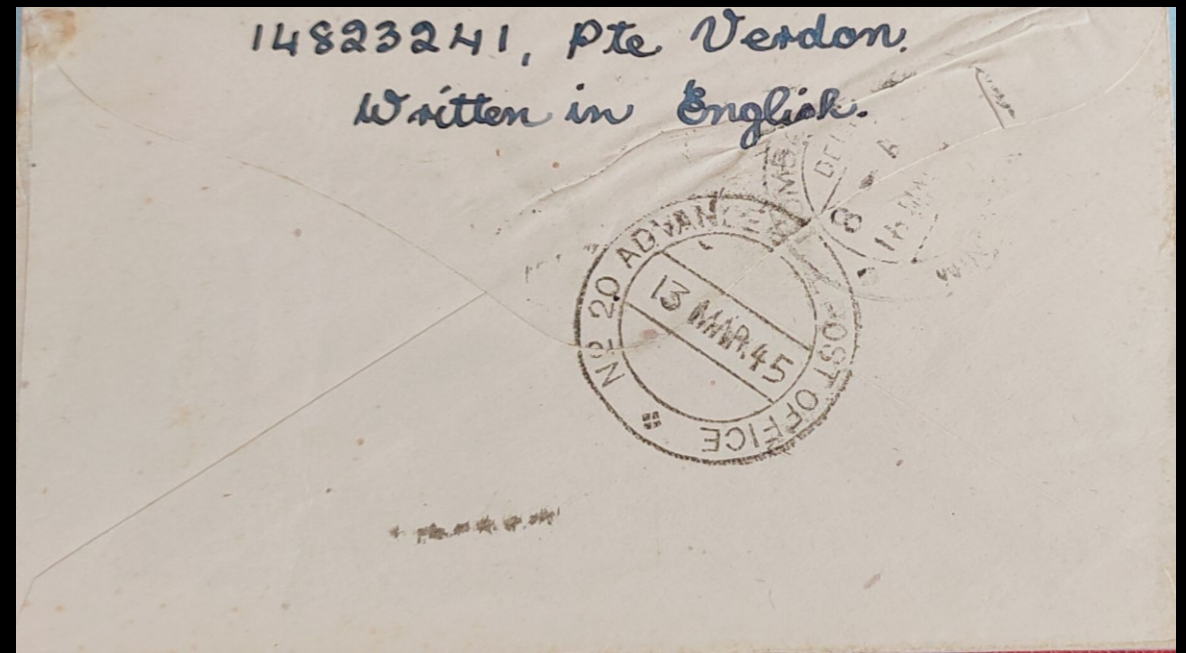 14823241, Pte Verdon.
Written in English.
Nº 20 ADVANCE POST OFFICE
13 MAR.45
8